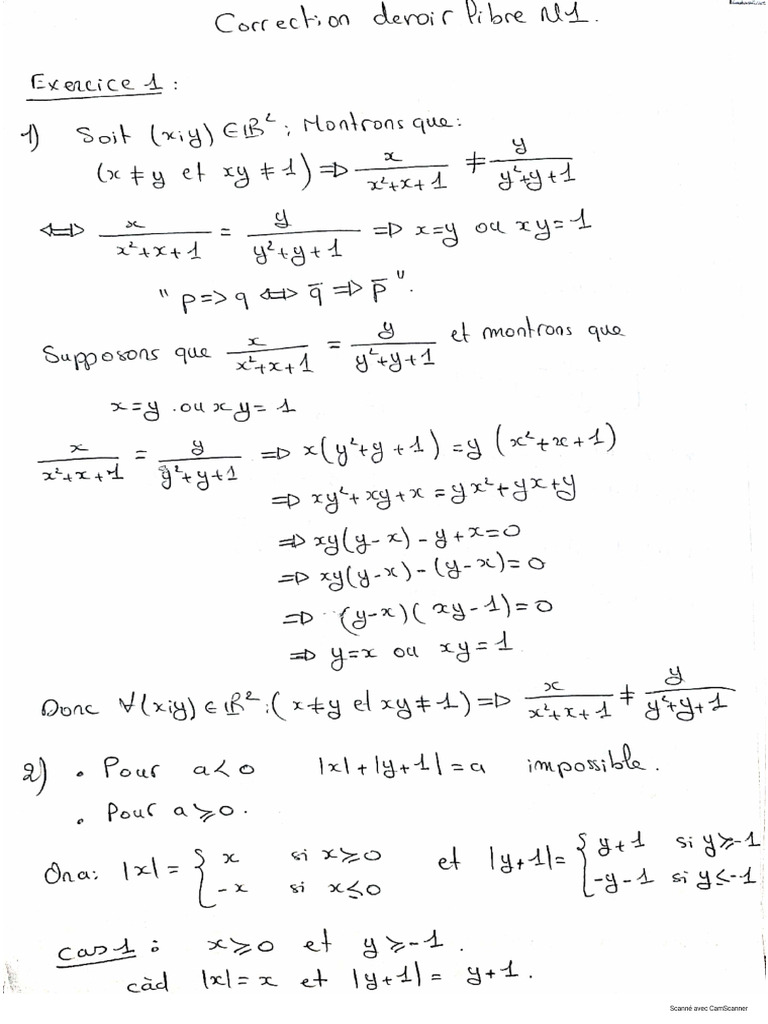 Correction devoir libre N1.
Exercice 1 :
1) Soit (x;y) ∈ ℝ² ; Montrons que:
(x ≠ y et xy ≠ 1) ⇒ x/(x²+x+1) ≠ y/(y²+y+1)
⇔ x/(x²+x+1) = y/(y²+y+1) ⇒ x=y ou xy=1
" p => q ⇔ q̅ ⇒ p̅ ".
Supposons que x/(x²+x+1) = y/(y²+y+1) et montrons que
x=y . ou xy = 1
x/(x²+x+1) = y/(y²+y+1) ⇒ x(y²+y+1) = y(x²+x+1)
⇒ xy²+xy+x = yx²+yx+y
⇒ xy(y-x) - y+x=0
⇒ xy(y-x) - (y-x) = 0
⇒ (y-x)(xy-1) = 0
⇒ y=x ou xy=1
Donc ∀(x;y) ∈ ℝ² ; (x≠y et xy≠1) ⇒ x/(x²+x+1) ≠ y/(y²+y+1)
2) • Pour a<0 |x|+|y+1| = a impossible.
• Pour a⩾0.
Ona: |x| = { x si x⩾0 et |y+1| = { y+1 si y⩾-1
-x si x⩽0 -y-1 si y⩽-1
cas 1 : x⩾0 et y⩾-1.
càd |x|=x et |y+1| = y+1.
Scanné avec CamScanner